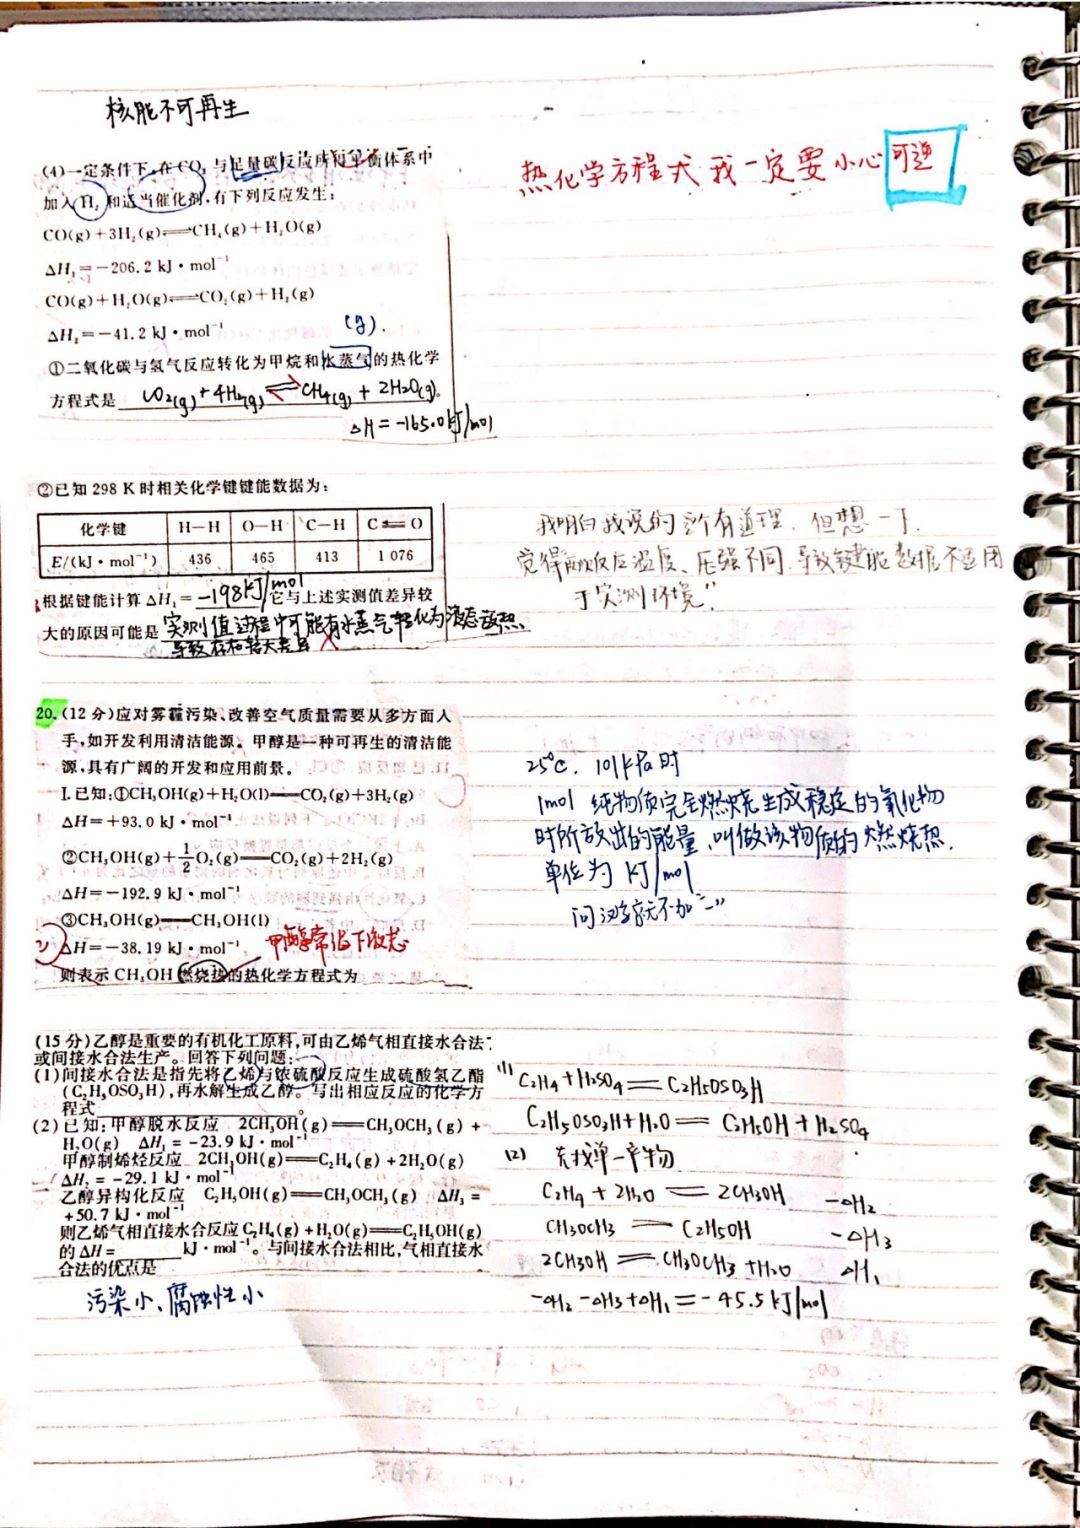 核能不可再生
(4)一定条件下,在CO₂与足量碳反应所得平衡体系中
加入H₂和适当催化剂,有下列反应发生:
CO(g)+3H₂(g)⇌CH₄(g)+H₂O(g)
ΔH₁=−206.2 kJ·mol⁻¹
CO(g)+H₂O(g)⇌CO₂(g)+H₂(g)
ΔH₂=−41.2 kJ·mol⁻¹
(g).
①二氧化碳与氢气反应转化为甲烷和水蒸气的热化学
方程式是 CO₂(g)+4H₂(g)⇌CH₄(g)+2H₂O(g).
ΔH=-165.0kJ/mol
热化学方程式我一定要小心可逆
②已知 298 K 时相关化学键键能数据为:
化学键 H—H O—H C—H C≡O
E/(kJ·mol⁻¹) 436 465 413 1 076
根据键能计算 ΔH₁= -198kJ/mol 它与上述实测值差异较
大的原因可能是 实测值过程中可能有水蒸气转化为液态放热.
导致存在较大差异 ×
我明白我说的 有道理. 但想一下.
觉得两次反应温度、压强不同.导致键能数据不适用
于"实测环境".
20.(12 分)应对雾霾污染、改善空气质量需要从多方面入
手,如开发利用清洁能源。甲醇是一种可再生的清洁能
源,具有广阔的开发和应用前景。
Ⅰ.已知:①CH₃OH(g)+H₂O(l)══CO₂(g)+3H₂(g)
ΔH=+93.0 kJ·mol⁻¹
②CH₃OH(g)+½O₂(g)══CO₂(g)+2H₂(g)
ΔH=−192.9 kJ·mol⁻¹
③CH₃OH(g)══CH₃OH(l)
ΔH=−38.19 kJ·mol⁻¹ 甲醇常温下液态
则表示 CH₃OH 燃烧热的热化学方程式为
25℃. 101kPa时
1mol 纯物质完全燃烧生成稳定的氧化物
时所放出的能量,叫做该物质的燃烧热.
单位为 kJ/mol
问汉字就不加"−"
(15 分)乙醇是重要的有机化工原料,可由乙烯气相直接水合法
或间接水合法生产。回答下列问题:
(1)间接水合法是指先将乙烯与浓硫酸反应生成硫酸氢乙酯
(C₂H₅OSO₃H),再水解生成乙醇。写出相应反应的化学方
程式 。
(2)已知:甲醇脱水反应 2CH₃OH(g)══CH₃OCH₃(g)+
H₂O(g) ΔH₁=−23.9 kJ·mol⁻¹
甲醇制烯烃反应 2CH₃OH(g)══C₂H₄(g)+2H₂O(g)
ΔH₂=−29.1 kJ·mol⁻¹
乙醇异构化反应 C₂H₅OH(g)══CH₃OCH₃(g) ΔH₃=
+50.7 kJ·mol⁻¹
则乙烯气相直接水合反应 C₂H₄(g)+H₂O(g)══C₂H₅OH(g)
的 ΔH= kJ·mol⁻¹。与间接水合法相比,气相直接水
合法的优点是
污染小、腐蚀性小
(1) C₂H₄+H₂SO₄══C₂H₅OSO₃H
C₂H₅OSO₃H+H₂O══C₂H₅OH+H₂SO₄
(2) 先找单一产物
C₂H₄+2H₂O══2CH₃OH -ΔH₂
CH₃OCH₃══C₂H₅OH -ΔH₃
2CH₃OH══CH₃OCH₃+H₂O ΔH₁
-ΔH₂-ΔH₃+ΔH₁=-45.5kJ/mol